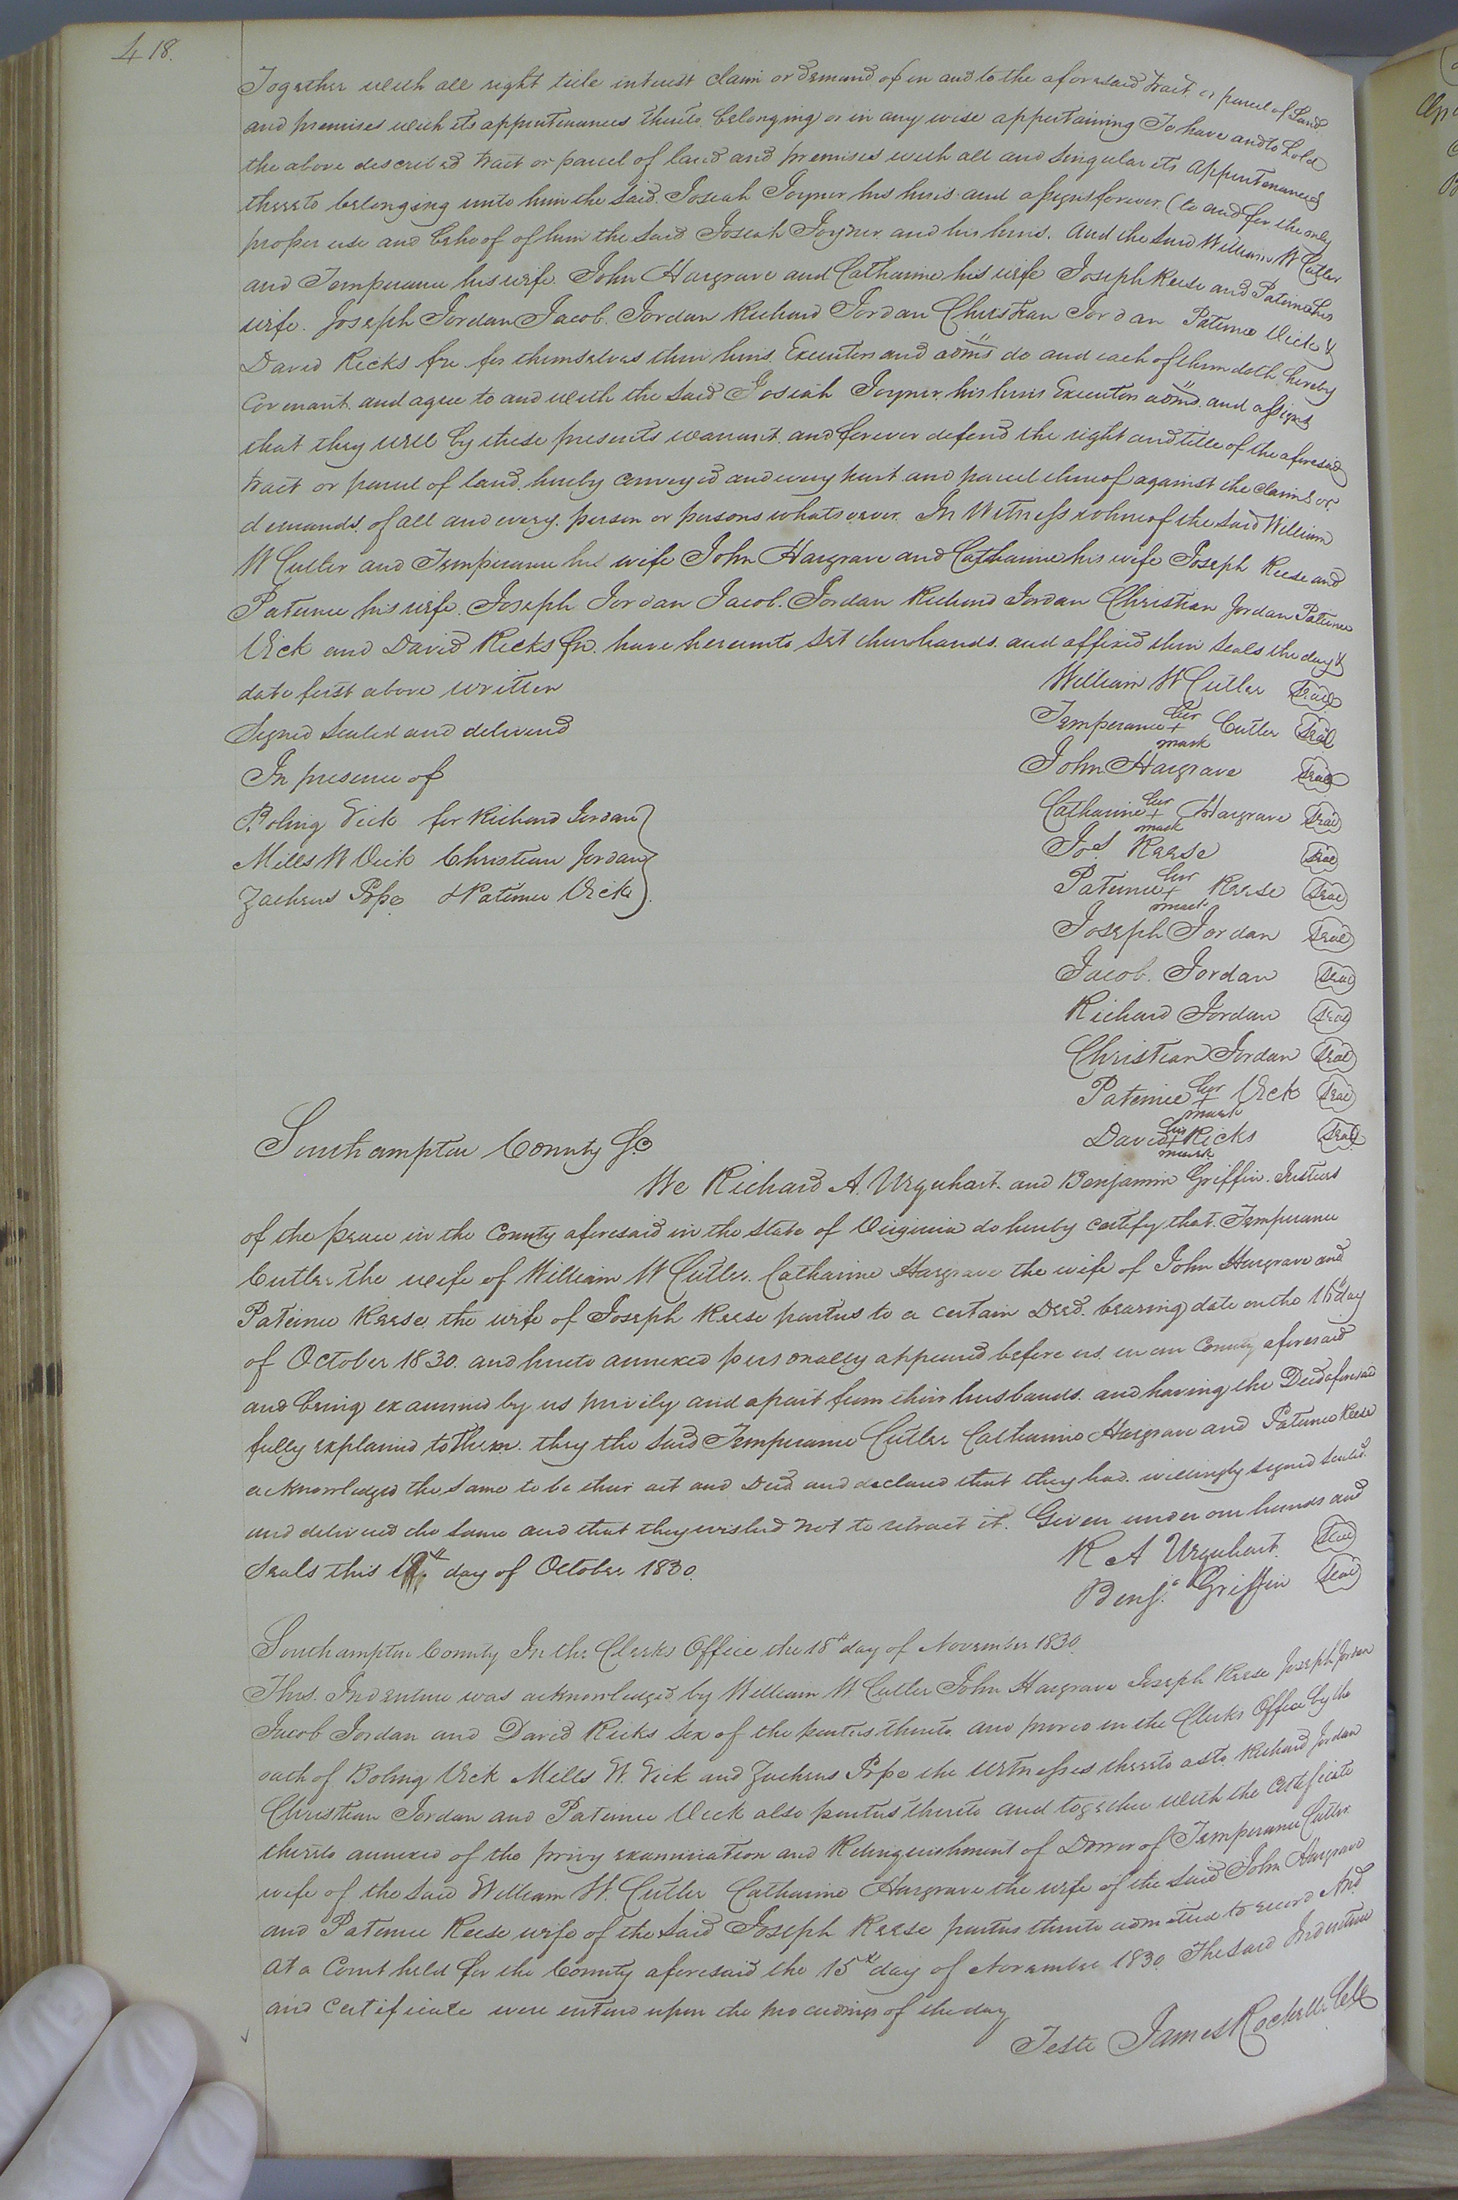 418.
Together with all right title interest claim or demand of in and to the aforesaid tract or parcel of Land
and premises with its appurtenances thereto belonging or in any wise appertaining To have and to hold
the above described tract or parcel of land and premises with all and singular its appurtenances
thereto belonging unto him the said Josiah Joyner his heirs and assigns forever (to and for the only
proper use and behoof of him the said Josiah Joyner and his heirs. And the said William W Cutler
and Temperance his wife John Hargrave and Catharine his wife Joseph Reese and Patience his
wife. Joseph Jordan Jacob Jordan Richard Jordan Christian Jordan Patience Vick &
David Ricks for themselves their heirs Executors and adms do and each of them doth hereby
Covenant and agree to and with the said Josiah Joyner his heirs Executors adms and assigns
that they will by these presents warrant and forever defend the right and title of the aforesaid
tract or parcel of land hereby conveyed and every part and parcel thereof against the claims or
demands of all and every person or persons whatsoever. In Witness whereof the said William
W Cutler and Temperance his wife John Hargrave and Catharine his wife Joseph Reese and
Patience his wife. Joseph Jordan Jacob Jordan Richard Jordan Christian Jordan Patience
Vick and David Ricks have hereunto set their hands and affixed their seals the day &
date first above written
Signed Sealed and delivered
In presence of
Boling Vick for Richard Jordan
Mills W Vick Christian Jordan
Zacheus Pope & Patience Vick
William W Cutler Seal
Temperance her + mark Cutler Seal
John Hargrave Seal
Catharine her + mark Hargrave Seal
Jos Reese Seal
Patience her + mark Reese Seal
Joseph Jordan Seal
Jacob Jordan Seal
Richard Jordan Seal
Christian Jordan Seal
Patience her + mark Vick Seal
David his + mark Ricks Seal
Southampton County Sc
We Richard A. Urquhart and Benjamin Griffin Justices
of the peace in the County aforesaid in the State of Virginia do hereby certify that Temperance
Cutler the wife of William W Cutler. Catharine Hargrave the wife of John Hargrave and
Patience Reese the wife of Joseph Reese parties to a certain Deed bearing date on the 16th day
of October 1830. and hereto annexed personally appeared before us in our County aforesaid
and being examined by us privily and apart from their husbands and having the Deed aforesaid
fully explained to them they the said Temperance Cutler Catharine Hargrave and Patience Reese
acknowledged the same to be their act and Deed and declared that they had willingly signed sealed
and delivered the same and that they wished not to retract it. Given under our hands and
Seals this day of October 1830.
R A Urquhart Seal
Benja Griffin Seal
Southampton County In the Clerks Office the 15th day of November 1830
This Indenture was acknowledged by William W Cutler John Hargrave Joseph Reese Joseph Jordan
Jacob Jordan and David Ricks six of the parties thereto and proved in the Clerks Office by the
oath of Boling Vick Mills W. Vick and Zacheus Pope the witnesses thereto as to Richard Jordan
Christian Jordan and Patience Vick also parties thereto and together with the certificate
thereto annexed of the privy examination and Relinquishment of Dower of Temperance Cutler
wife of the said William W. Cutler Catharine Hargrave the wife of the said John Hargrave
and Patience Reese wife of the said Joseph Reese parties thereto admitted to record And
At a Court held for the County aforesaid the 15th day of November 1830 The said Indenture
and Certificate were entered upon the proceedings of the day
Teste James Rochelle Clk